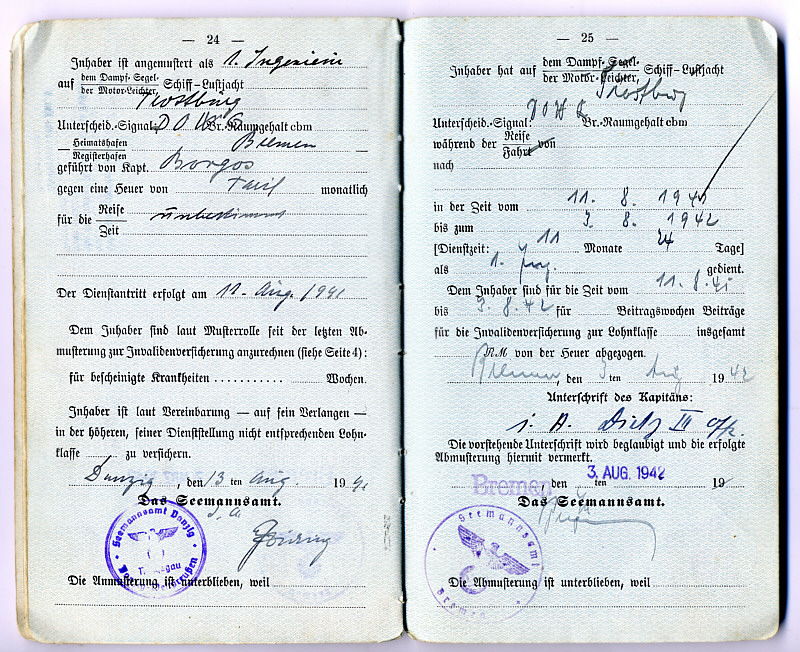 — 24 —
Inhaber ist angemustert als 1. Ingenieur
auf dem Dampf- Segel- Schiff-Lustjacht
der Motor-Leichter,
Trostburg
Unterscheid.-Signal: D O Br.-Raumgehalt cbm
Heimatshafen Bremen
Registerhafen
geführt von Kapt. Borgos
gegen eine Heuer von Tarif monatlich
für die Reise unbestimmt
Zeit
Der Dienstantritt erfolgt am 11. Aug. 1941
Dem Inhaber sind laut Musterrolle seit der letzten Ab-
musterung zur Invalidenversicherung anzurechnen (siehe Seite 4):
für bescheinigte Krankheiten ........... Wochen.
Inhaber ist laut Vereinbarung — auf sein Verlangen —
in der höheren, seiner Dienststellung nicht entsprechenden Lohn-
klasse zu versichern.
Danzig, den 13ten Aug. 1941
Das Seemannsamt.
I. A.
Seemannsamt Danzig
Die Anmusterung ist unterblieben, weil
— 25 —
Inhaber hat auf dem Dampf- Segel- Schiff-Lustjacht
der Motor-Leichter,
Trostburg
Unterscheid.-Signal: Br.-Raumgehalt cbm
während der Reise von
Fahrt
nach
in der Zeit vom 11. 8. 1941
bis zum 3. 8. 1942
[Dienstzeit: 11 Monate 24 Tage]
als 1. Ing. gedient.
Dem Inhaber sind für die Zeit vom 11.8.41
bis 3.8.42 für Beitragswochen Beiträge
für die Invalidenversicherung zur Lohnklasse insgesamt
RM von der Heuer abgezogen.
Bremen, den 3ten Aug 1942
Unterschrift des Kapitäns:
i. A. Dietz III
Die vorstehende Unterschrift wird beglaubigt und die erfolgte
Abmusterung hiermit vermerkt.
Bremen den ten 3. AUG. 1942 19
Das Seemannsamt.
Seemannsamt
Bremen
Die Abmusterung ist unterblieben, weil